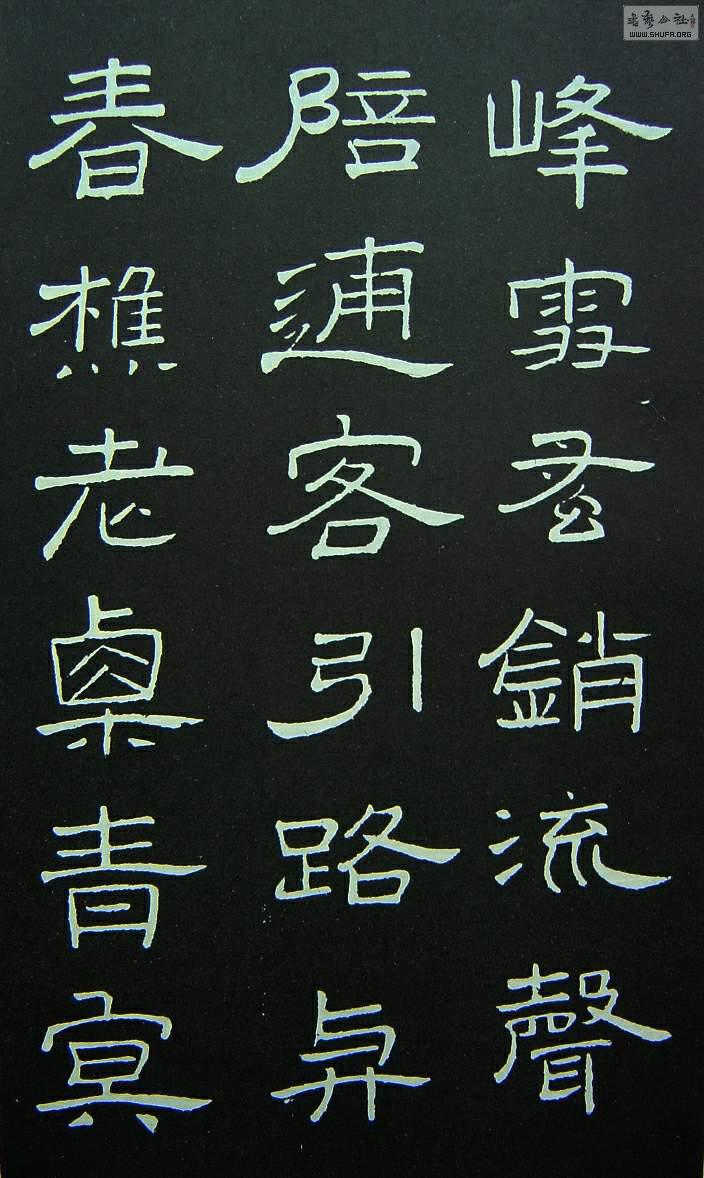 峰雪蚤銷流聲
陪逋客引路與
春樵老㮚青冥
书艺公社
WWW.SHUFA.ORG